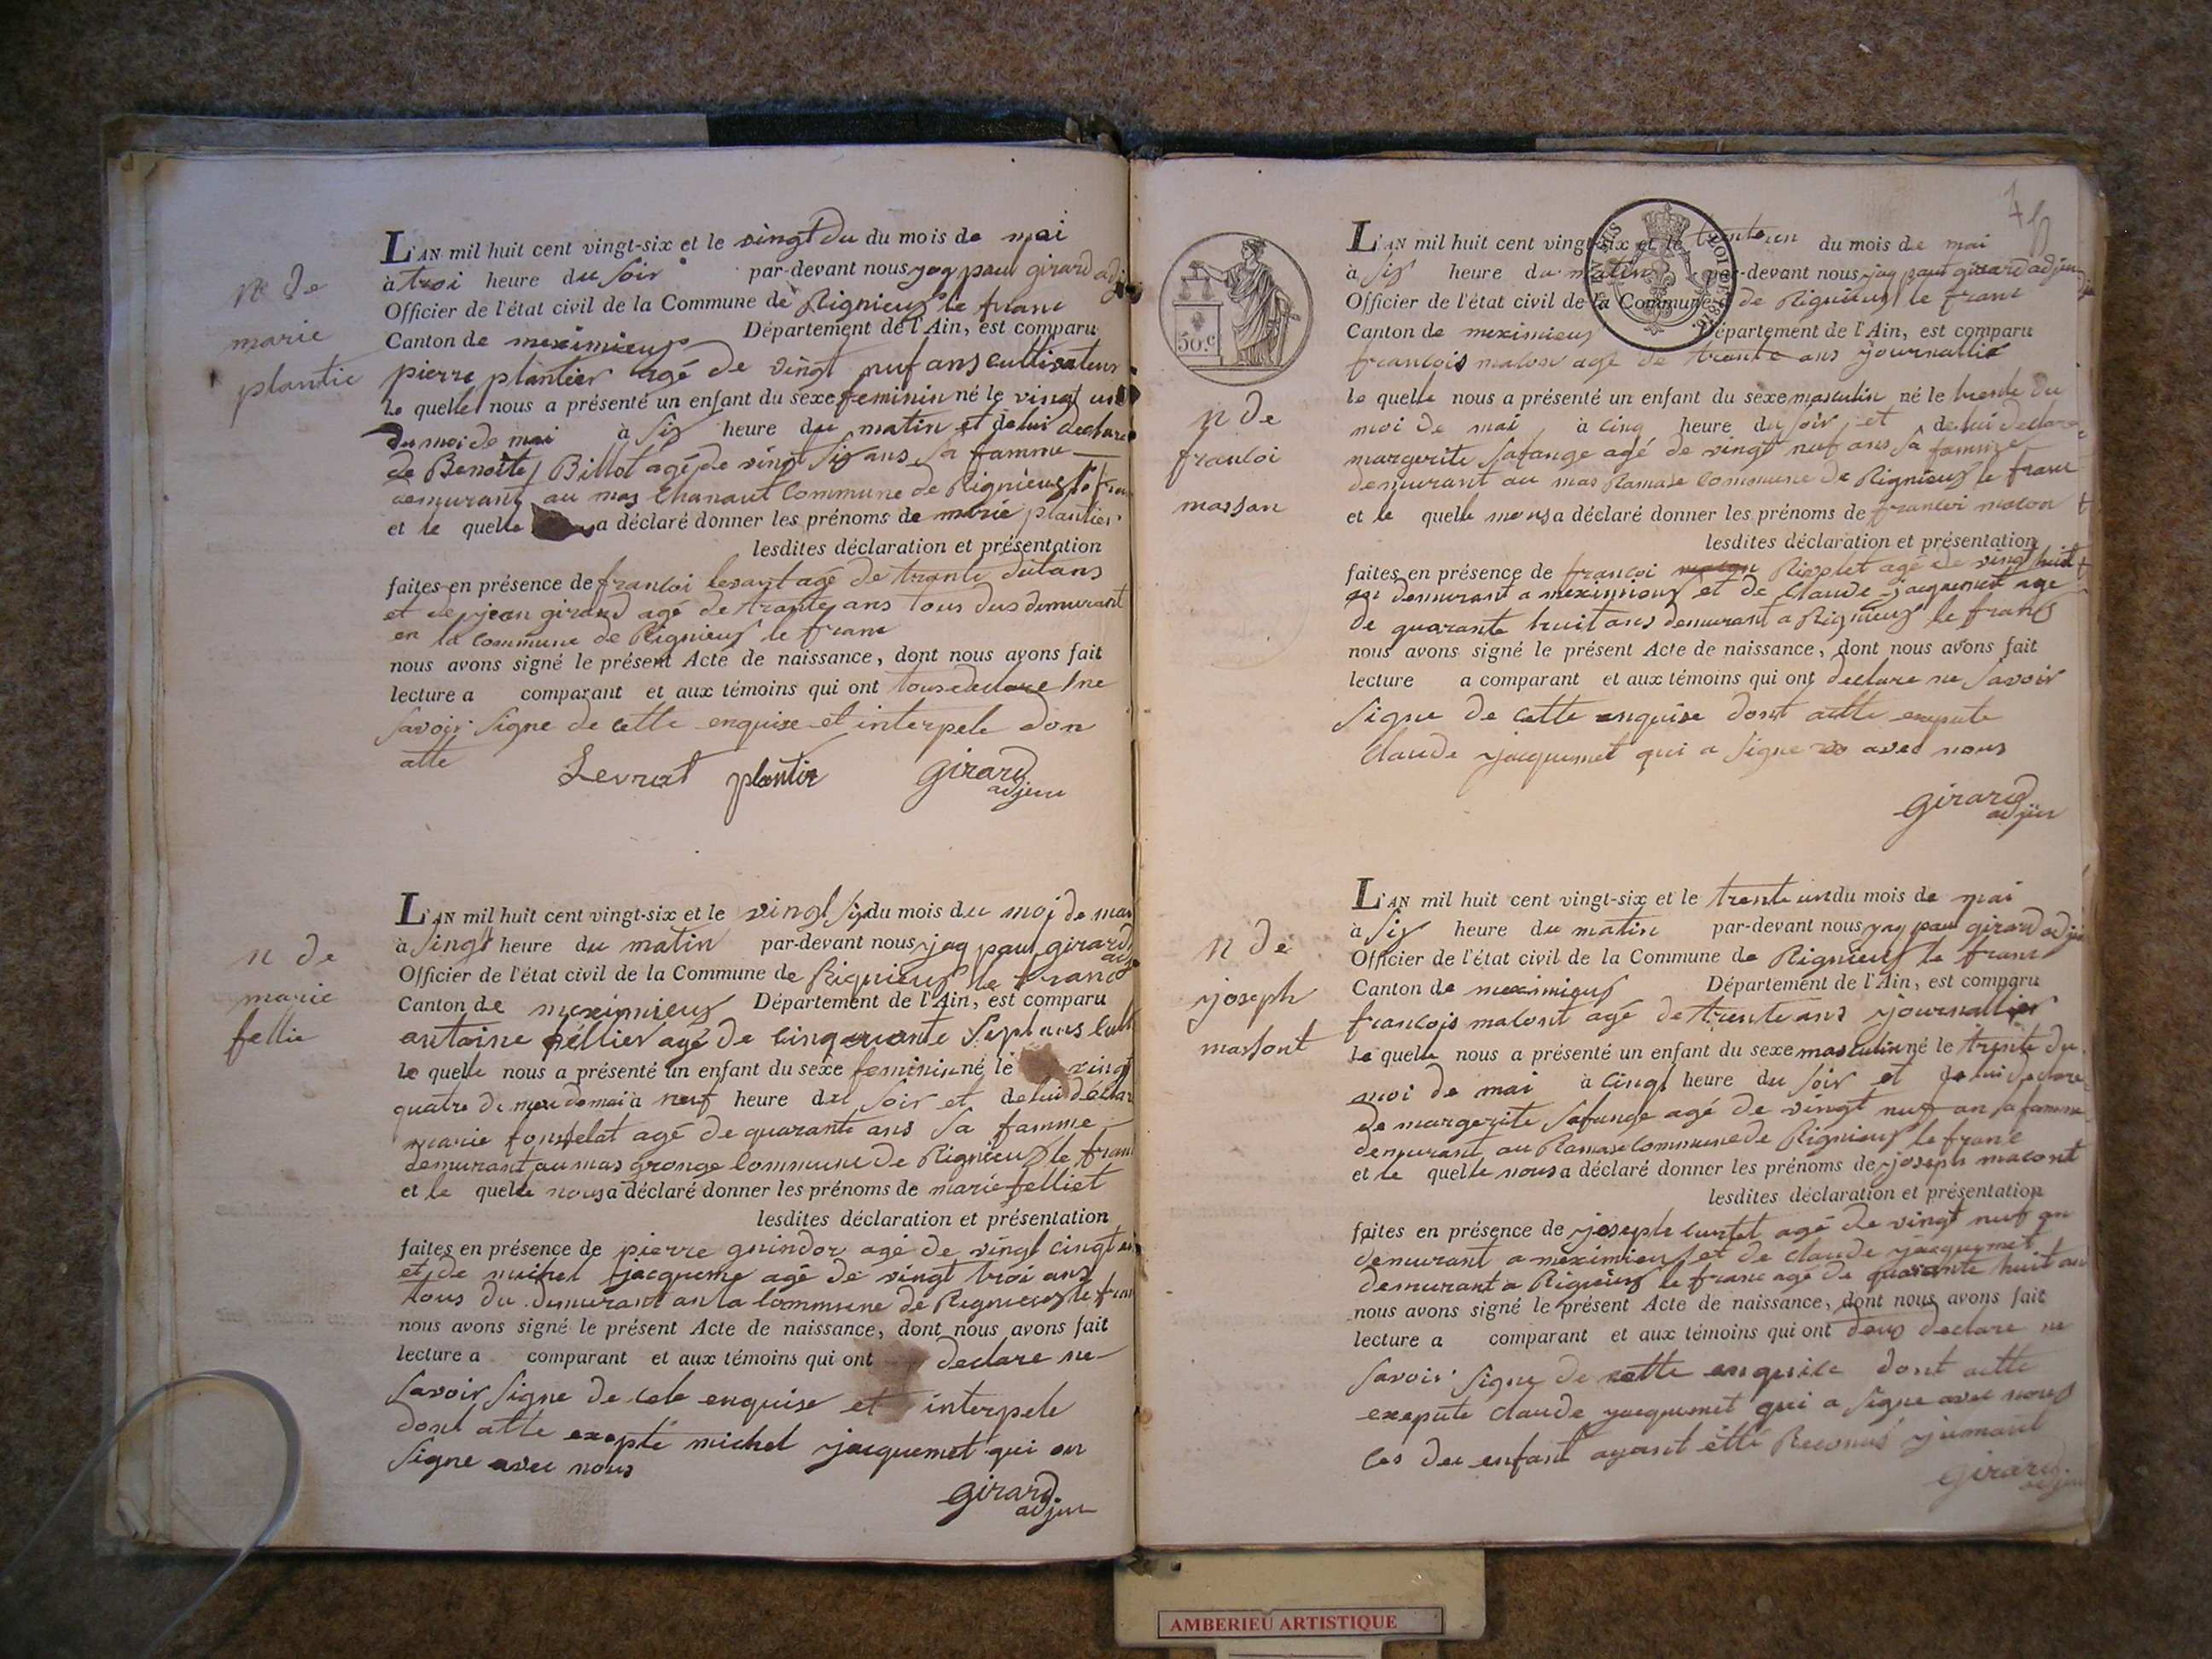 n de
marie
plantie
L'AN mil huit cent vingt-six et le vingt du du mois de mai
à troi heure du soir par-devant nous jaq paul girard adj
Officier de l'état civil de la Commune de Rignieux le franc
Canton de meximieux Département de l'Ain, est comparu
pierre plantier agé de vingt nuf ans cultivateur
le quelle nous a présenté un enfant du sexe feminin né le vingt un
du moi de mai à six heure du matin et de lui declare
de Benoite Billot agé de vingt six ans sa famme
demurant au mas Chanaut Commune de Rignieux le fran
et le quelle a déclaré donner les prénoms de marie plantier
lesdites déclaration et présentation
faites en présence de francoi levrat agé de trante ans
et de jean girard agé de trante ans tous dus demurant
en la commune de Rignieux le franc
nous avons signé le présent Acte de naissance, dont nous avons fait
lecture a comparant et aux témoins qui ont tous declare ne
savoir signe de cette enquise et interpele don
atte
Levrat plantier girard
adjeu
n de
marie
fellie
L'AN mil huit cent vingt-six et le vingt six du mois du moi de mai
à singt heure du matin par-devant nous jaq paul girard
Officier de l'état civil de la Commune de Rignieux le franc
Canton de meximieux Département de l'Ain, est comparu
antoine féllier agé de cinquante sept ans cult
le quelle nous a présenté un enfant du sexe feminin né le vingt
quatre de mai à neuf heure du soir et de lui déclar
marie agé de quarante ans sa famme
demurant au mas gronge Commune de Rignieux le franc
et le quelle nous a déclaré donner les prénoms de marie felliet
lesdites déclaration et présentation
faites en présence de pierre guindor agé de vingt cingt
et de michel jacqueme agé de vingt troi ans
tous du demurant an la Commune de Rignieux le fran
nous avons signé le présent Acte de naissance, dont nous avons fait
lecture a comparant et aux témoins qui ont declare ne
savoir signe de cele enquise et interpele
dont atte exepte michel jacquemet qui on
signe avec nous
girard
adjeu
50.c
n de
francoi
massan
L'AN mil huit cent vingt-six et le trenteun du mois de mai
à six heure du matin par-devant nous jaq paul girard adjeu
Officier de l'état civil de la Commune de Rignieux le franc
Canton de meximieux Département de l'Ain, est comparu
francois macon agé de trante ans journallié
le quelle nous a présenté un enfant du sexe masculin né le trente du
moi de mai à cinq heure du soir et de lui declare
margerite safange agé de vingt nuf ans sa famme
demurant au mas Ramase commune de Rignieux le franc
et le quelle nous a déclaré donner les prénoms de francoi macon
lesdites déclaration et présentation
faites en présence de francoi Rivolet agé de vingt huit
demurant a meximieux et de claude jacquemet agé
de quarante huit ans demurant a Rignieux le franc
nous avons signé le présent Acte de naissance, dont nous avons fait
lecture a comparant et aux témoins qui ont declare ne savoir
signe de cette enquise dont atte exepute
claude jacquemet qui a signe avec nous
girard
adjeu
n de
joseph
massont
L'AN mil huit cent vingt-six et le trente un du mois de mai
à six heure du matin par-devant nous jaq paul girard adjeu
Officier de l'état civil de la Commune de Rignieux le franc
Canton de meximieux Département de l'Ain, est comparu
francois macont agé de trente ans journallier
le quelle nous a présenté un enfant du sexe masculin né le trente du
moi de mai à cingt heure du soir et de lui declare
de margerite safange agé de vingt nuf an sa famme
demurant au Ramase Commune de Rignieux le franc
et le quelle nous a déclaré donner les prénoms de joseph macont
lesdites déclaration et présentation
faites en présence de joseph curtet agé de vingt nuf an
demurant a meximieux et de claude jacquemet
demurant a Rignieux le franc agé de quarante huit an
nous avons signé le présent Acte de naissance, dont nous avons fait
lecture a comparant et aux témoins qui ont deux declare ne
savoir signe de cette enquise dont atte
exepute claude jacquemet qui a signe avec nous
les deu enfant ayant etté Reconus jumant
girard
adjeu
AMBERIEU ARTISTIQUE